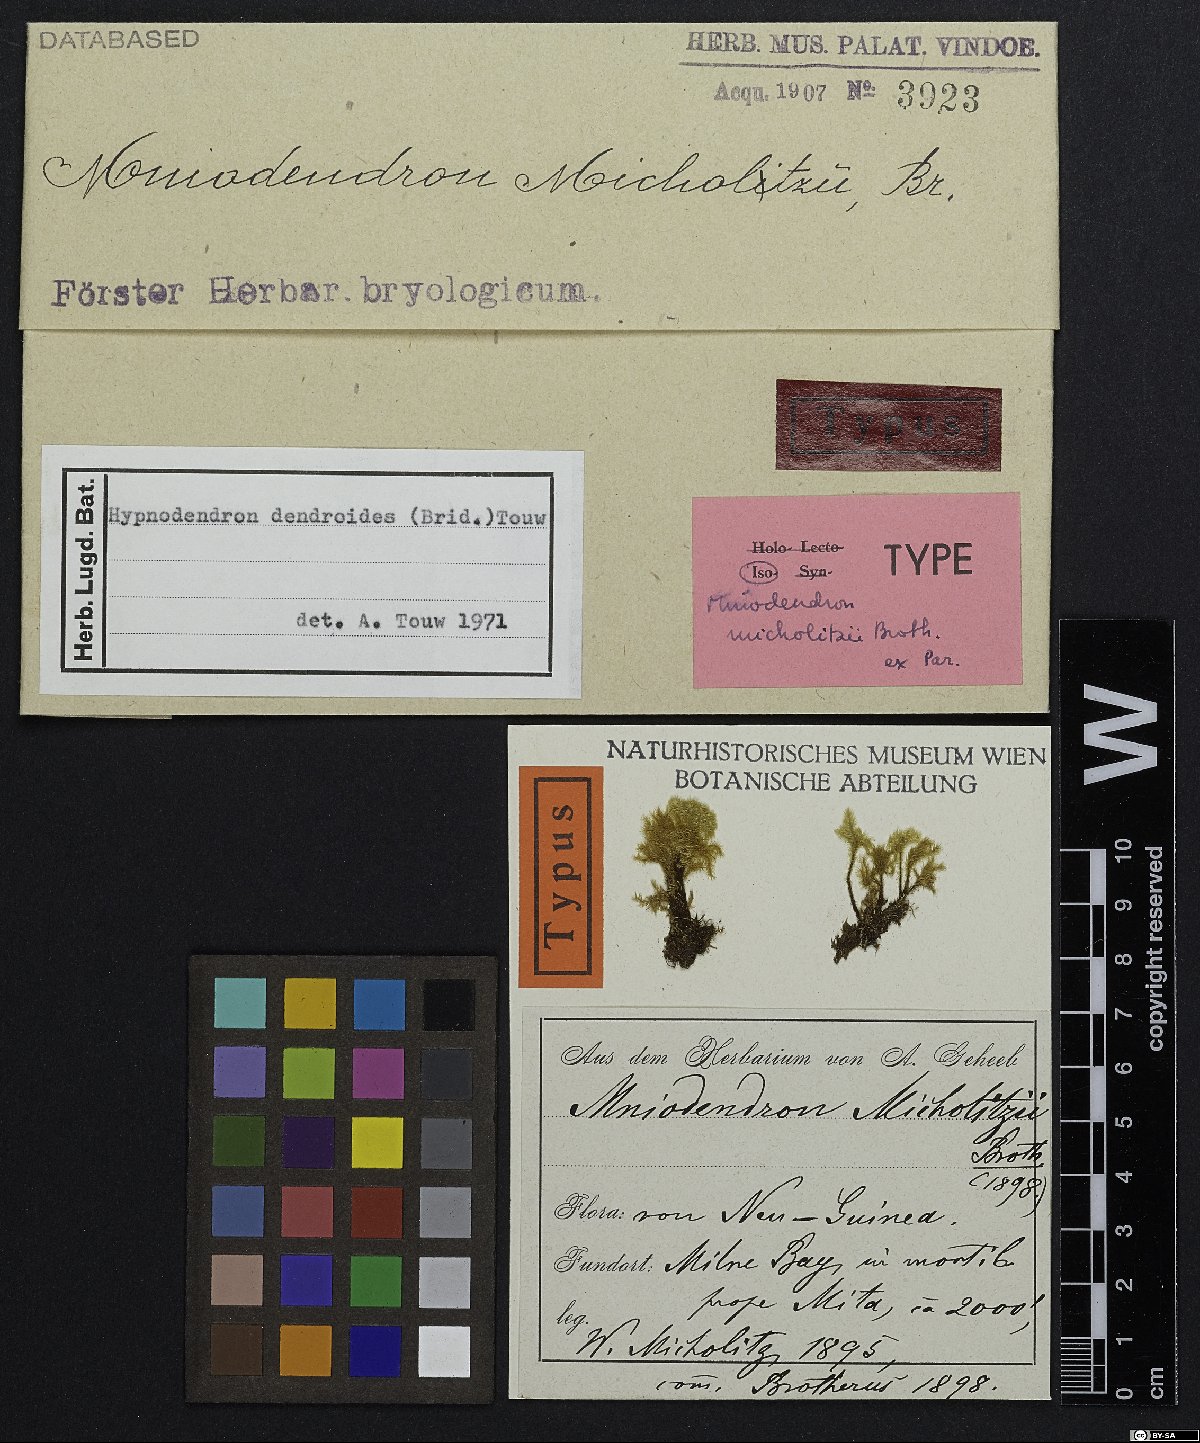 DATABASED
HERB. MUS. PALAT. VINDOB.
Acqu. 1907 No. 3923
Mniodendron Micholitzii, Br.
Förster Herbar. bryologicum.
Typus
Herb. Lugd. Bat.
Hypnodendron dendroides (Brid.)Touw
det. A. Touw 1971
Holo- Lecto-
Iso- Syn-
TYPE
Mniodendron
micholitzii Broth.
ex Par.
NATURHISTORISCHES MUSEUM WIEN
BOTANISCHE ABTEILUNG
Typus
Aus dem Herbarium von A. Geheeb
Mniodendron Micholitzii
Broth.
(1898)
Flora: von Neu-Guinea.
Fundort: Milne Bay, in montib.
prope Mita, ca 2000',
leg.
W. Micholitz, 1895,
com. Brotherus 1898.
W
10
9
8
7
6
5
4
3
2
1
0
cm
copyright reserved
cc BY-SA